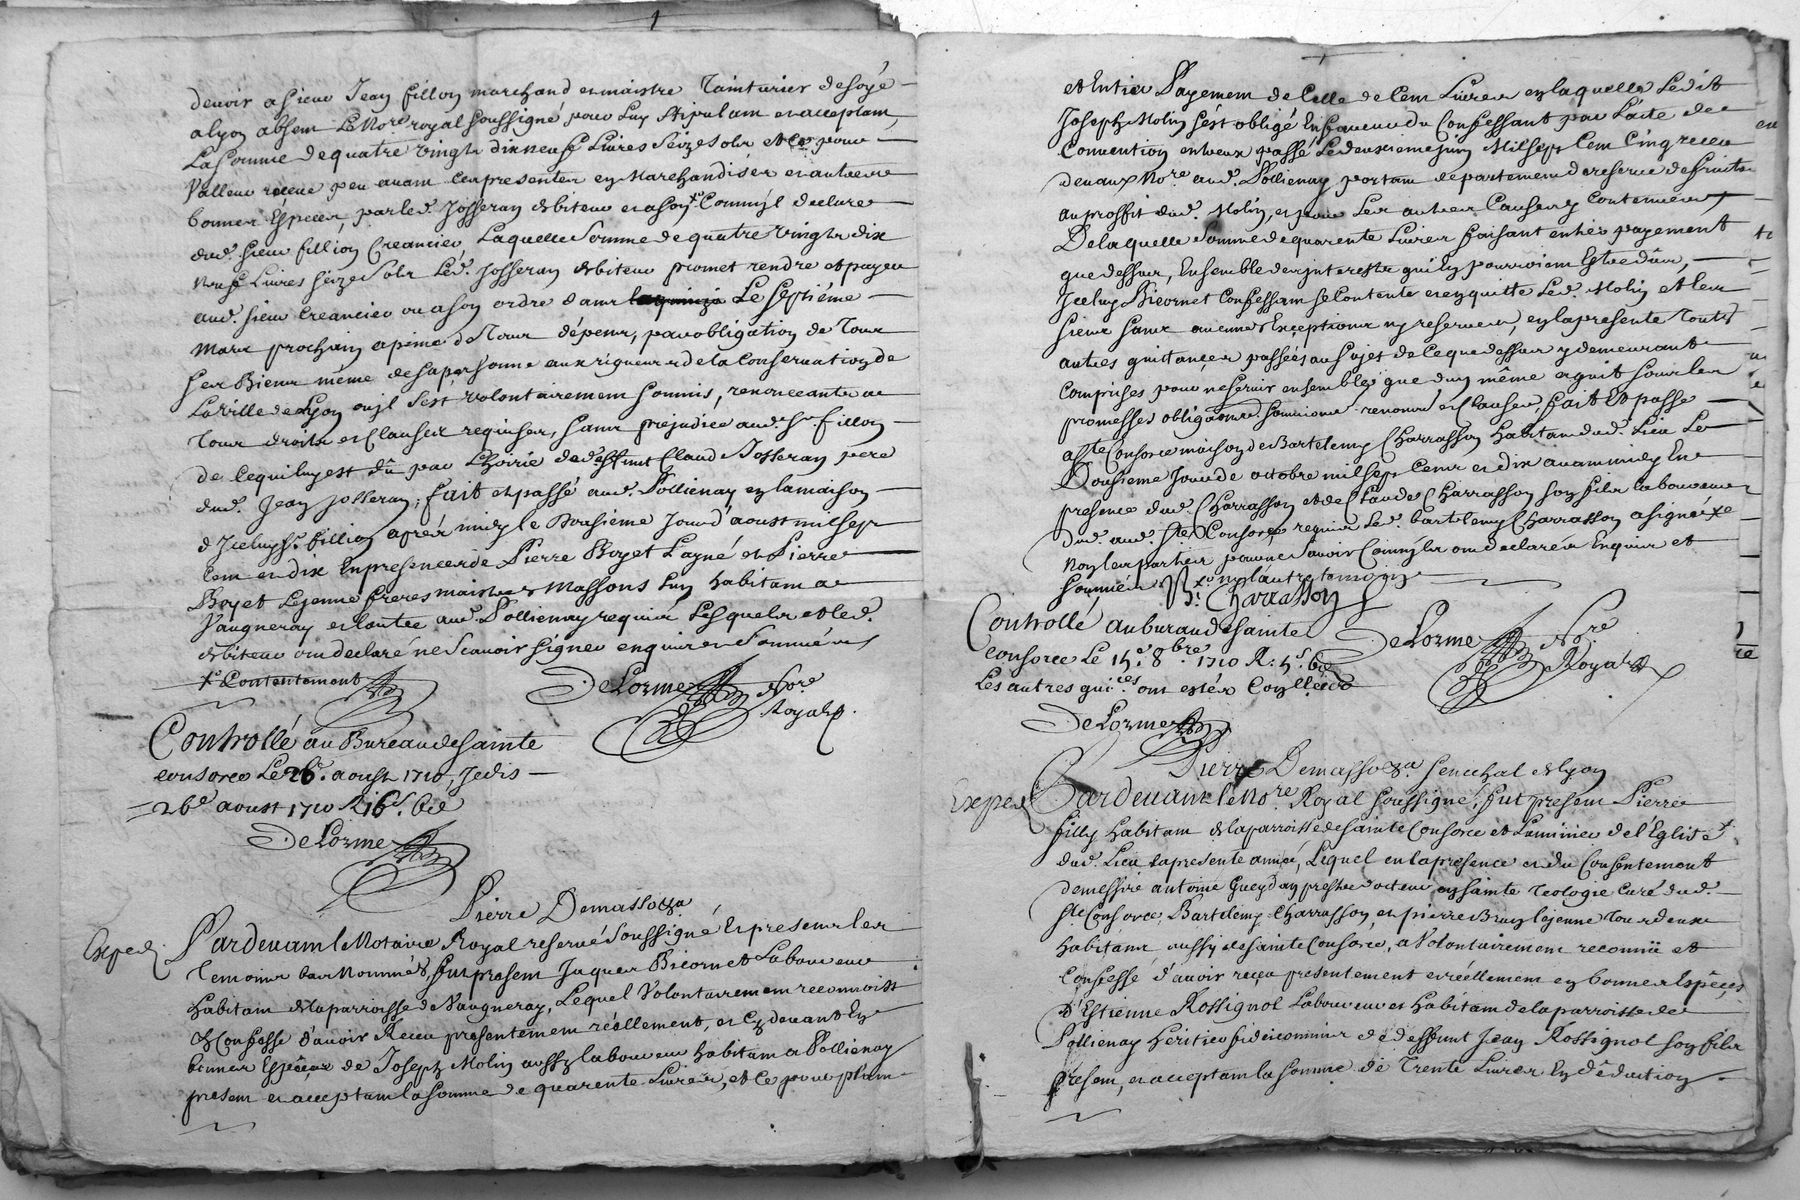 devoir a sieur Jean fillion marchand et maistre Tainturier de soye
a lyon absent Le No.re royal soussigné pour Luy stipulant et acceptant,
La somme de quatre vingts dix neuf Livres seize sols et ce pour
valleur receue peu avant ces presentes en Marchandises et autres
bonnes Especes, par led. Josseran debiteur a son x.e Comm'il declare
dud. sieur fillion Creancier, Laquelle somme de quatre vingts dix
neuf Livres seize sols Led. Josseran debiteur promet rendre et payer
aud. sieur Creancier ou a son ordre dans Le septiéme
Mars prochain a peine de Tous dépens, par obligation de Tous
ses Biens même de sa personne aux rigueurs de la Conservation de
La ville de Lyon ou jl s'est volontairement soumis, renonceante a
Tous droits et Clauses requises, sans prejudice aud. S.r fillion
de ce qui luy est dû par L'hoirie de deffunt Claud Josseran pere
dud. Jean Josseran; fait et passé aud. Pollienay en la maison
d'Jceluy S.r fillion aprés midy le Jour d'aoust mil sept
cent et dix En presence de Pierre Boyet Layné et Pierre
Boyet Lejeune freres maistres Massons Lun habitant a
Vaugneray et lautre aud. Pollienay requis Lesquels et led.
debiteur ont declaré ne scavoir signer enquis et sommés
x.e Contentement
DeLorme No.re Royal
Controllé au Bureau de sainte
consorce Le 26.e aoust 1710, Je dis
26.e aoust 1710 R 16.s 6.d
DeLorme
Pierre Demasso
Exped. Pardevant le Notaire Royal reservé soussigné Et presents les
Temoins bas Nommés, fut present Jaques Bicornet Laboureur
habitant de la parroisse de Vaugneray, Lequel Volontairement reconnoist
et Confesse d'avoir Receu presentement réellement, et Cy devant En
bonnes Especes de Joseph Molin aussy laboureur habitant a Pollienay
present et acceptant la somme de quarente Livres, et Ce pour plain
et Entier Payement de Celle de Cent Livres en laquelle Ledit
Joseph Molin s'est obligé En faveur du Confessant par L'acte de
Convention entr'eux passé Le deuxieme Juin Mil sept Cent Cinq receu
devant No.re aud. Pollienay portant departement de reserve de fruits
au proffit dud. Molin, et pour Les autres Causes y Contenues
De laquelle somme de quarente Livres faisant entier payement
que dessus, Ensemble des jnterests qu'en pourroient Estre dûs,
Jceluy Bicornet Confessant se Contente et en quitte Led. Molin et les
siens sans aucunes Exceptions ny reserves, en la presente Toutes
autres quittances passées au sujet de Ce que dessus y demeurant
Comprises pour ne servir ensembles que d'un même aquit sous les
promesses obligations, soumissions renonces et Clauses, fait et passé
a s.te Consorce maison de Bartelemy Charrasson habitant dud. Lieu Le
Jour de octobre mil sept Cents et dix avant midy En
presence dud. Charrasson et de Claudes Charrasson son fils laboureur
dud. aud. Ste Consorce requis Led. bartelemy Charrasson a signé x.e
Non les parties pour ne scavoir Comm'ils ont declaré Enquis et
sommés x.e ny l'autre temoin
B. Charrasson
Controllé au bureau de sainte
consorce Le 15.e 8.bre 1710 R: 5.s 6.d
Les autres qui.ces ont estés Conllées
DeLorme No.re Royal
DeLorme
Pierre Demasso Senechal de Lyon
Exped. Pardevant le No.re Royal soussigné, fut present Pierre
filly habitant de la parroisse de sainte Consorce et Luminier de l'Eglise
dud. Lieu la presente année, Lequel en la presence et du Consentement
de messire antoine Gueydan prestre docteur en sainte Teologie Curé dud.
Ste Consorce, Bartelemy Charrasson, et pierre Brun lejeune Tous deux
habitans aussy de sainte Consorce, a Volontairement reconnû et
Confessé d'avoir receu presentement et réellement en bonnes Especes
d'Estienne Rossignol Laboureur et habitant de la parroisse de
Pollienay Heritier fideicommis de deffunt Jean Rossignol son fils
present, et acceptant la somme de Trente Livres En déduction